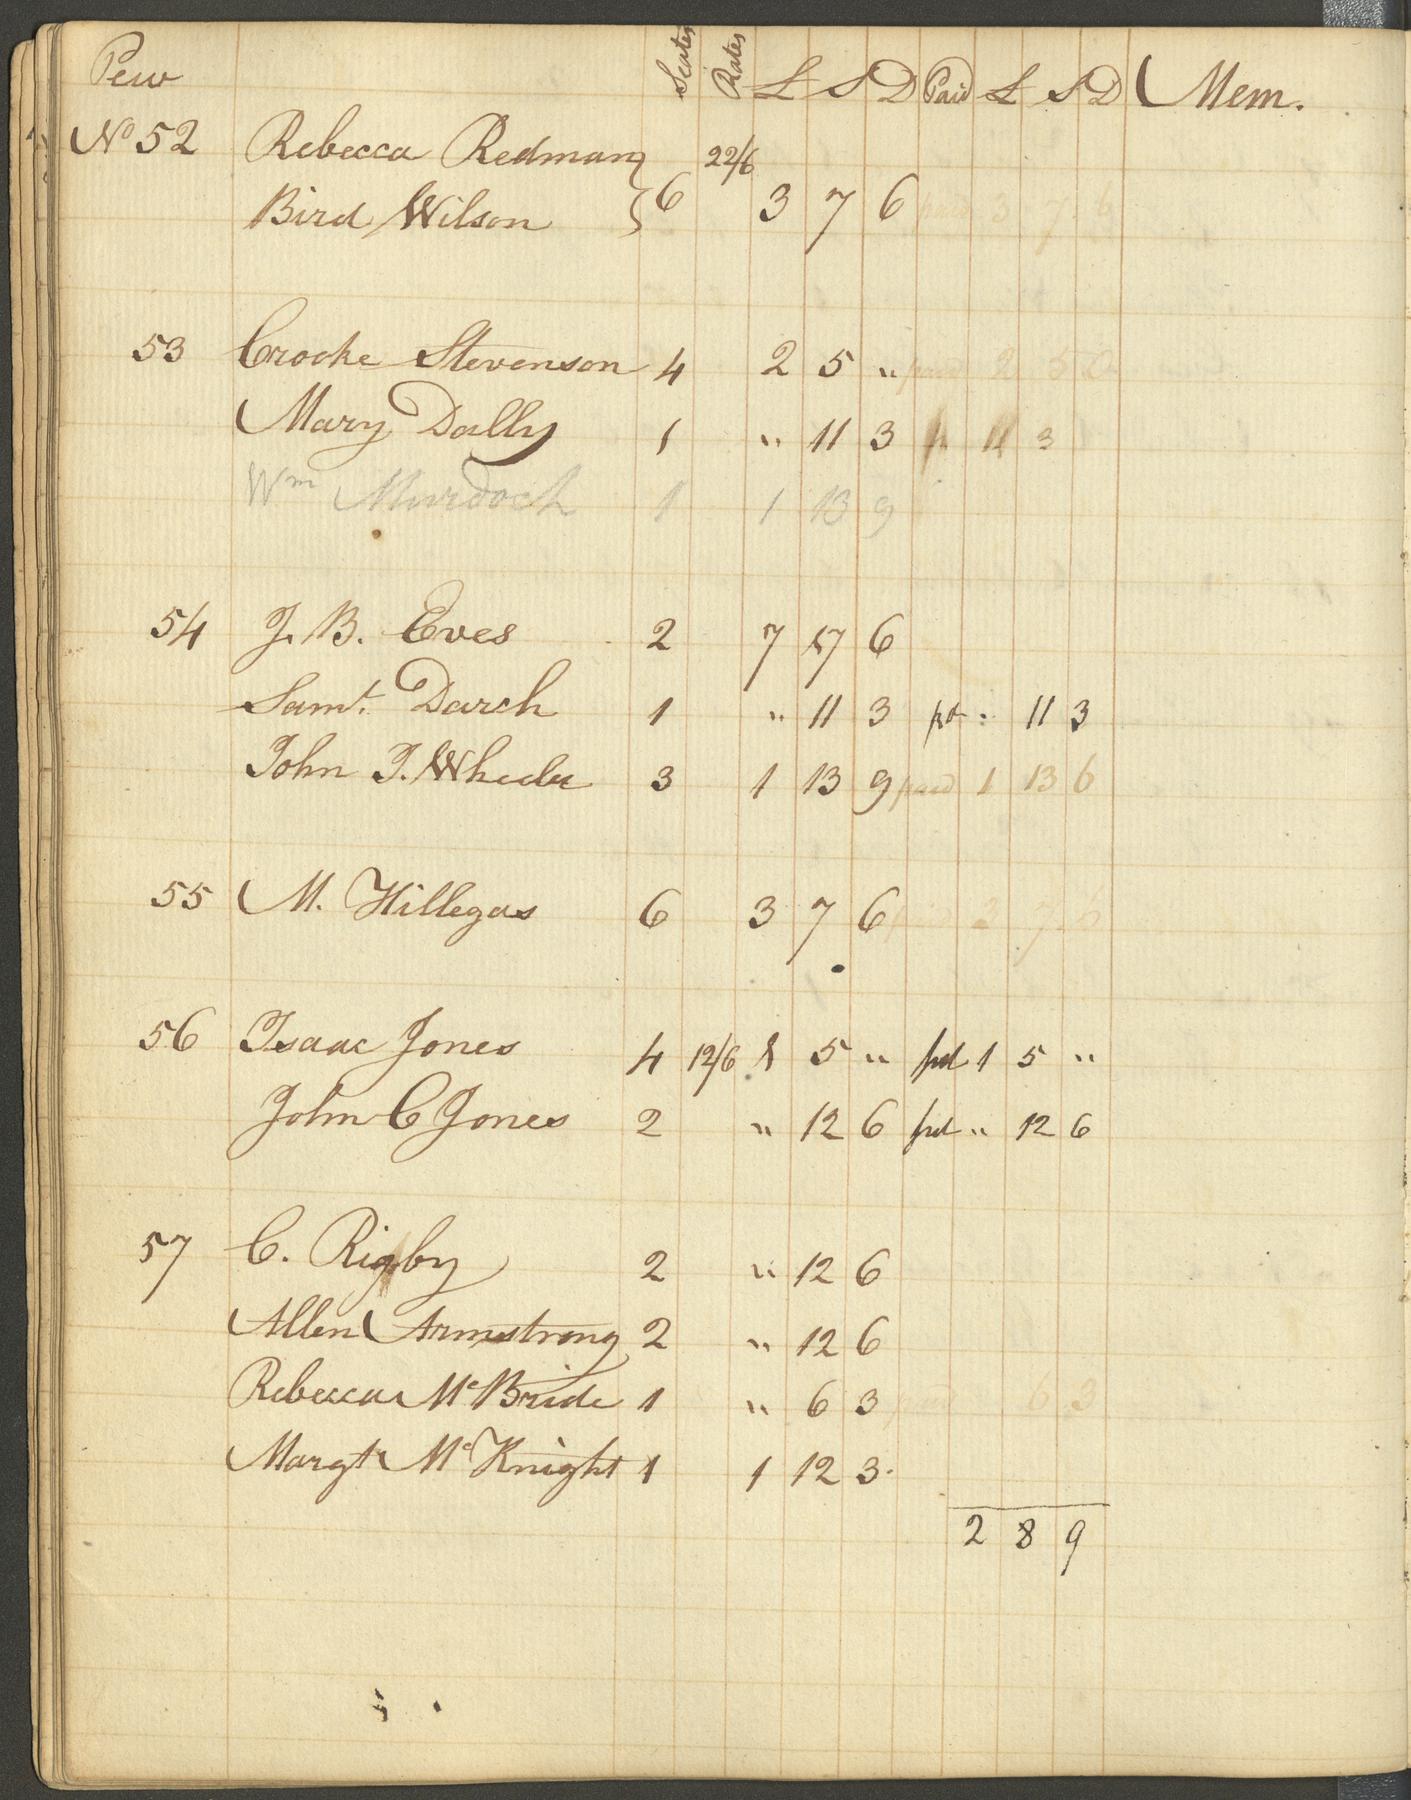 Pew Seates Rates £ S D Paid £ S D Mem.
No 52 Rebecca Redman 22/6
Bird Wilson 6 3 7 6 paid 3 7 6
53 Crooke Stevenson 4 2 5 " paid 2 5 0
Mary Dally 1 " 11 3 p 11 3
Wm Murdoch 1 1 13 9
54 J. B. Eves 2 7 17 6
Saml. Darch 1 " 11 3 pd : 11 3
John J. Wheeler 3 1 13 9 paid 1 13 6
55 M. Hillegas 6 3 7 6 3 7 6
56 Isaac Jones 4 12/6 1 5 " pd 1 5 "
John C Jones 2 " 12 6 pd " 12 6
57 C. Rigby 2 " 12 6
Allen Armstrong 2 " 12 6
Rebecca McBride 1 " 6 3 paid 6 3
Margt McKnight 1 1 12 3.
2 8 9